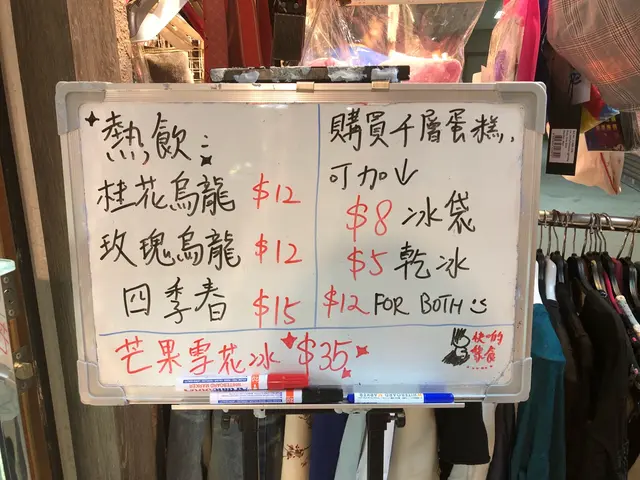 熱飲：
桂花烏龍 $12
玫瑰烏龍 $12
四季春 $15
購買千層蛋糕,
可加↓
$8 冰袋
$5 乾冰
$12 FOR BOTH
芒果雪花冰 $35